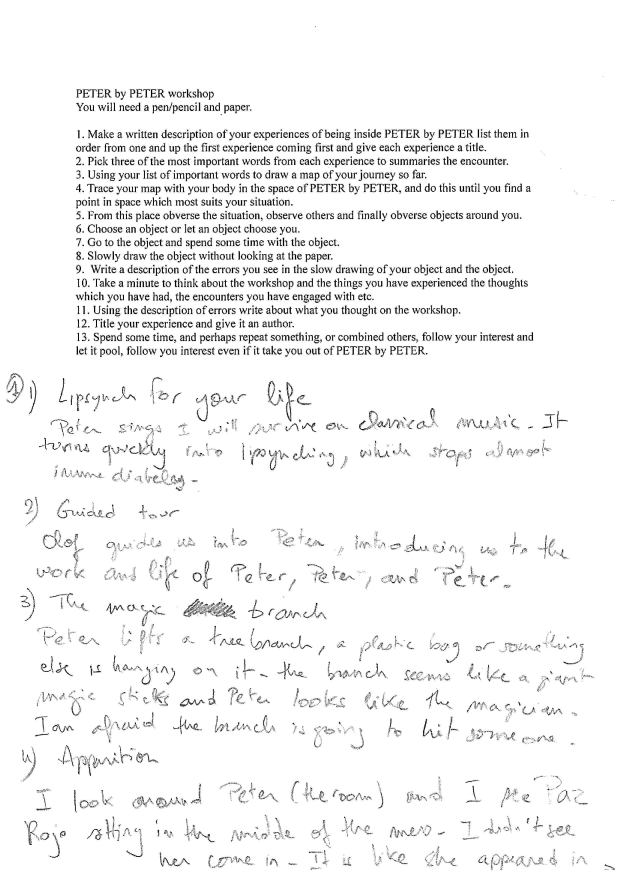 PETER by PETER workshop
You will need a pen/pencil and paper.
1. Make a written description of your experiences of being inside PETER by PETER list them in
order from one and up the first experience coming first and give each experience a title.
2. Pick three of the most important words from each experience to summaries the encounter.
3. Using your list of important words to draw a map of your journey so far.
4. Trace your map with your body in the space of PETER by PETER, and do this until you find a
point in space which most suits your situation.
5. From this place obverse the situation, observe others and finally obverse objects around you.
6. Choose an object or let an object choose you.
7. Go to the object and spend some time with the object.
8. Slowly draw the object without looking at the paper.
9. Write a description of the errors you see in the slow drawing of your object and the object.
10. Take a minute to think about the workshop and the things you have experienced the thoughts
which you have had, the encounters you have engaged with etc.
11. Using the description of errors write about what you thought on the workshop.
12. Title your experience and give it an author.
13. Spend some time, and perhaps repeat something, or combined others, follow your interest and
let it pool, follow you interest even if it take you out of PETER by PETER.
1) 1) Lipsynch for your life
Peter sings I will survive on classical music - It
turns quickly into lipsynching, which stops almost
immediately -
2) Guided tour
Olof guides us into Peter, introducing us to the
work and life of Peter, Peter, and Peter.
3) The magic branch
Peter lifts a tree branch, a plastic bag or something
else is hanging on it - the branch seems like a giant
magic sticks and Peter looks like the magician.
I am afraid the branch is going to hit someone.
4) Apparition
I look around Peter (the room) and I see Paz
Rojo sitting in the middle of the mess - I didn't see
her come in - It is like she appeared in